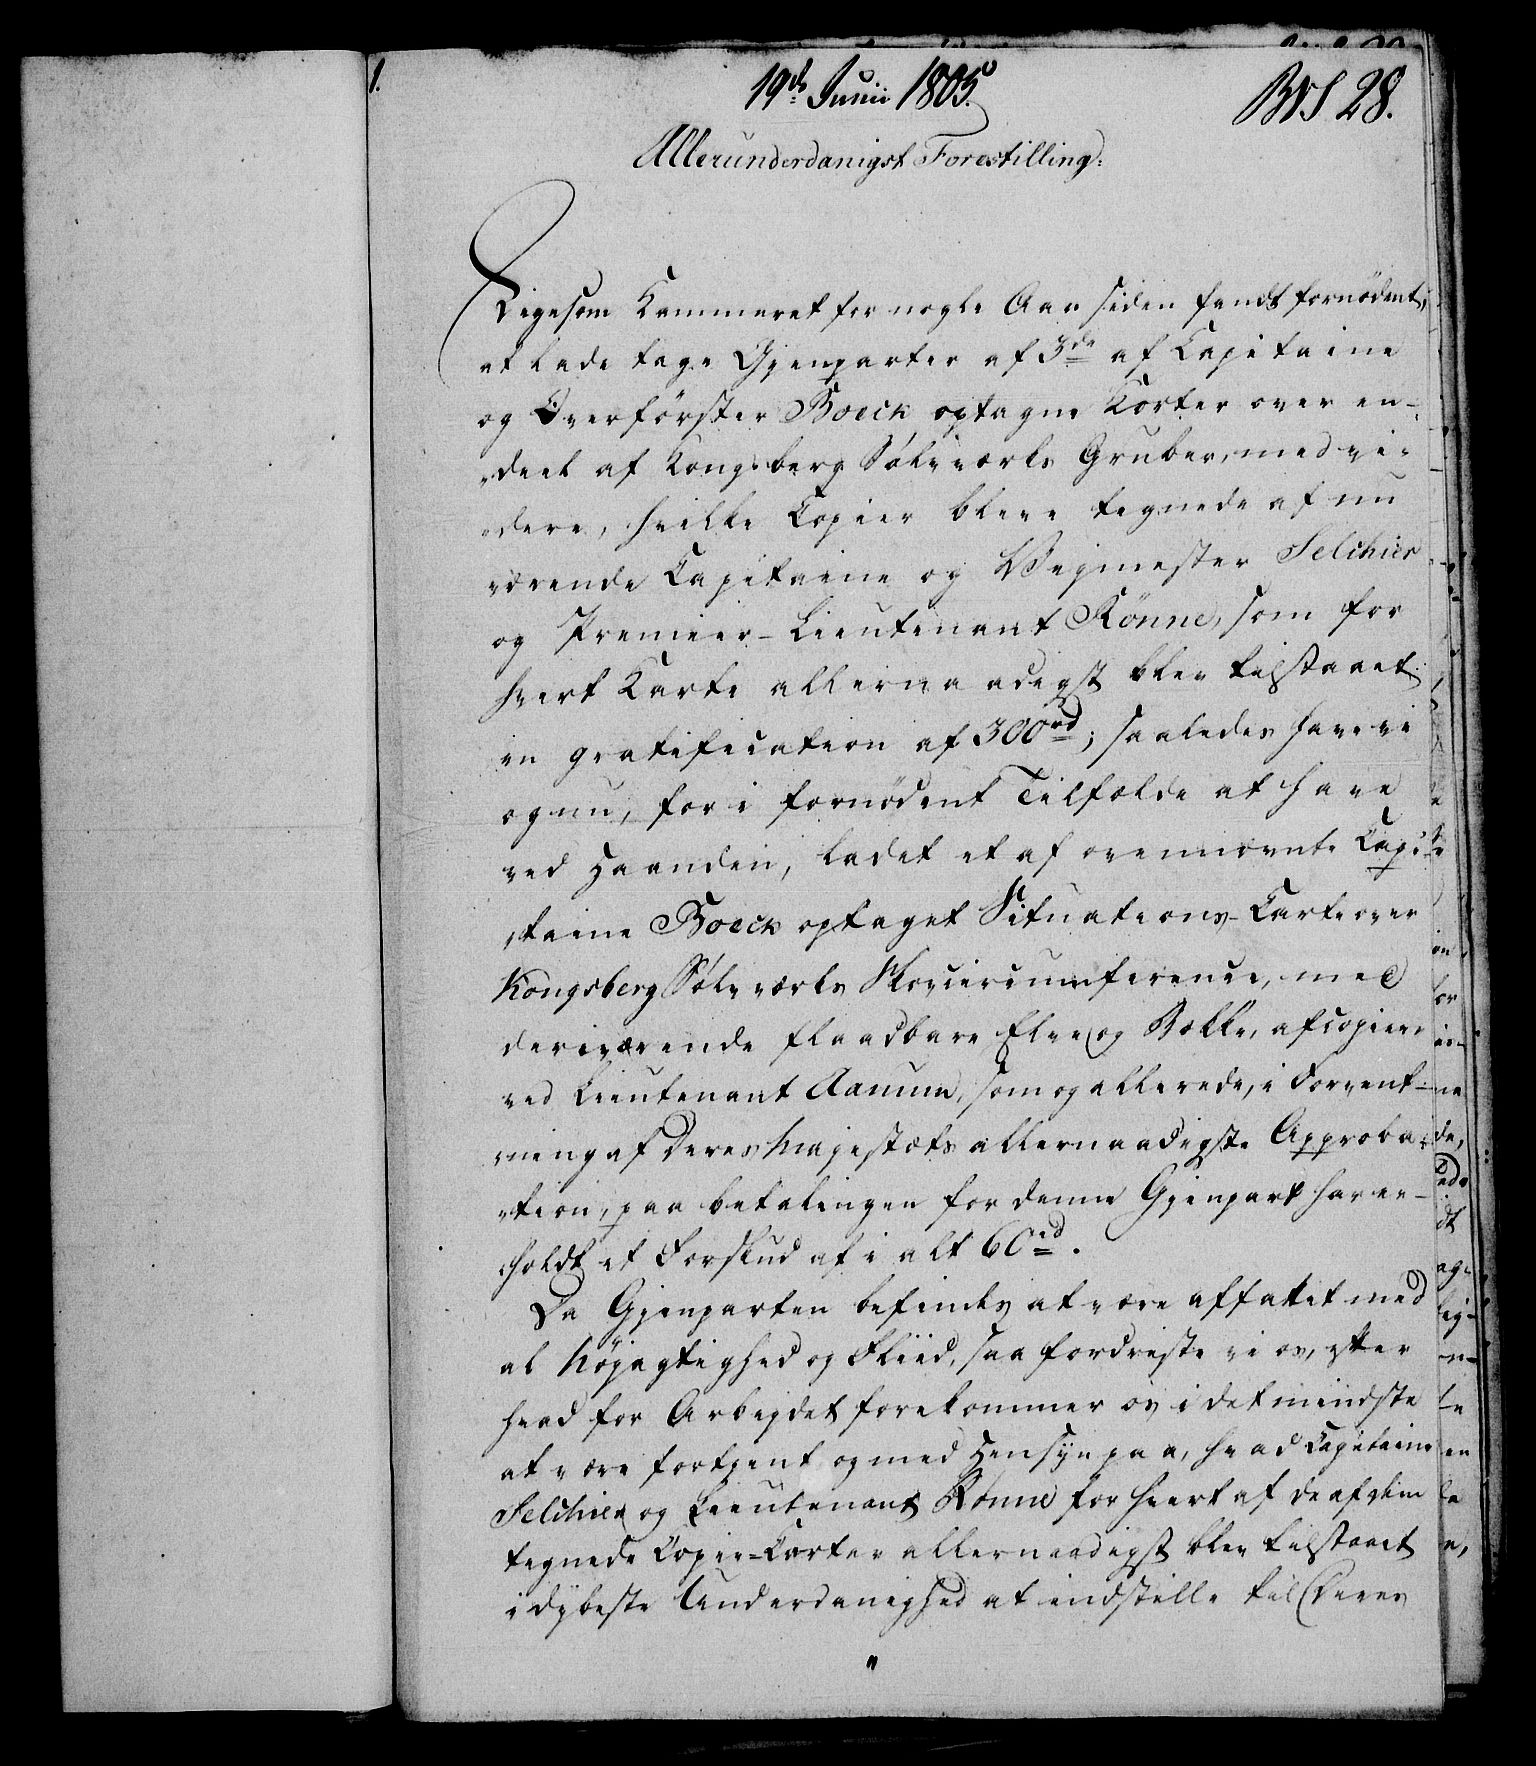 1.
19de Junii 1805.
BVS 28.
Allerunderdanigst Forestilling.
Ligesom Kammeret for nogle Aar siden fandt fornödent,
at lade tage Gjenparter af 3de af Capitaine
og Overförster Boeck optagne Korter over en-
„deel af Kongsberg Sölvværks Gruber, med vi-
„dere, hvilke Copier bleve tegnede af nu
værende Capitaine og Veymester Selchier
og Premier-Lieutenant Rönne, som for
hvert Karte allernaadigst blev tilstaaet
en gratification af 300rd; saaledes have vi
og nu, for i fornödent Tilfælde at have
ved Haanden, ladet et af ovennævnte Capi-
„taine Boeck optaget Situations-Carte over
Kongsberg Sölvværks Skovcircumference, med
derværende flaadbare Elve og Bække, afcopiere
ved Lieutenant Aanum, som og allerede, i Forvent-
ning af Deres Majestæts allernaadigste Approba-
„tion, paa betalingen for denne Gjenpart har er-
„holdt et Forskud af i alt 60rd.
Da Gjenparten befindes at være affattet med
al Nöjagtighed og Fliid, saa fordriste vi os, efter
hvad for Arbeydet forekommer os i det mindste
at være fortjent og med Hensyn paa, hvad Capitaine
Selchier og Lieutenant Rönne for hvert af de af dem
tegnede Copie-Carter allernaadigst blev tilstaaet
i dybeste Underdanighed at indstille til Deres
"